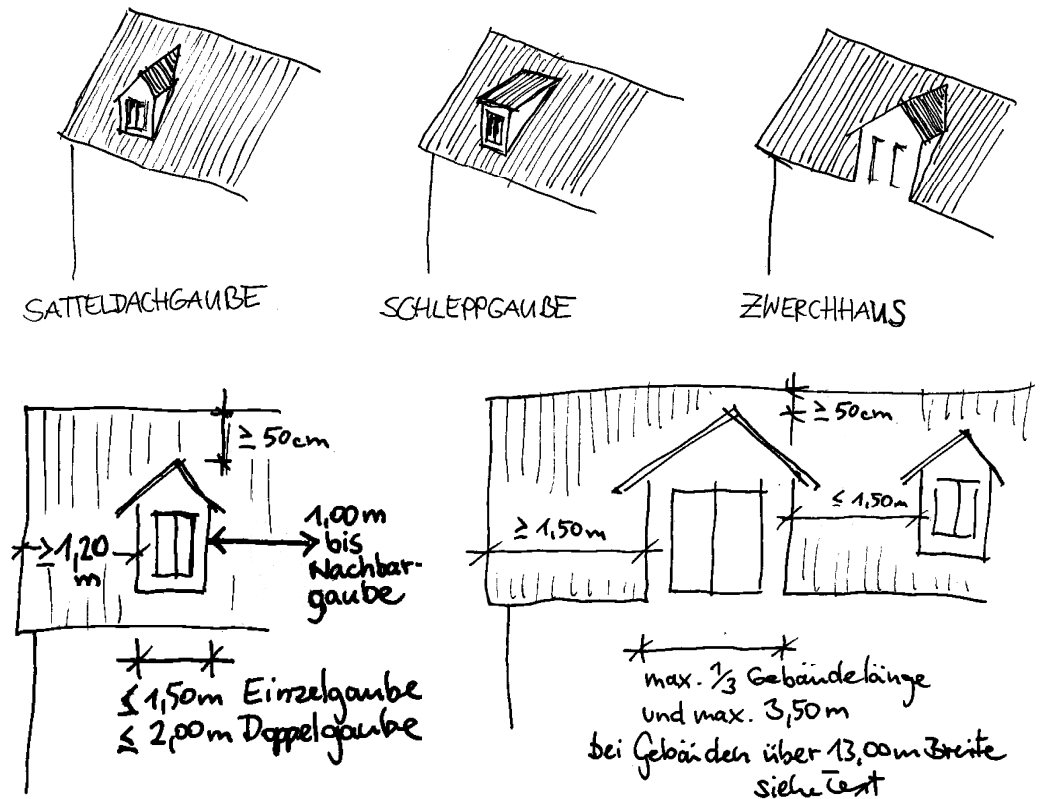 SATTELDACHGAUBE
SCHLEPPGAUBE
ZWERCHHAUS
≥ 50cm
≥1,20
m
1,00m
bis
Nachbar-
gaube
≤ 1,50m Einzelgaube
≤ 2,00m Doppelgaube
≥ 50cm
≥ 1,50m
≤ 1,50m
max. 1/3 Gebäudelänge
und max. 3,50m
bei Gebäuden über 13,00m Breite
siehe Text